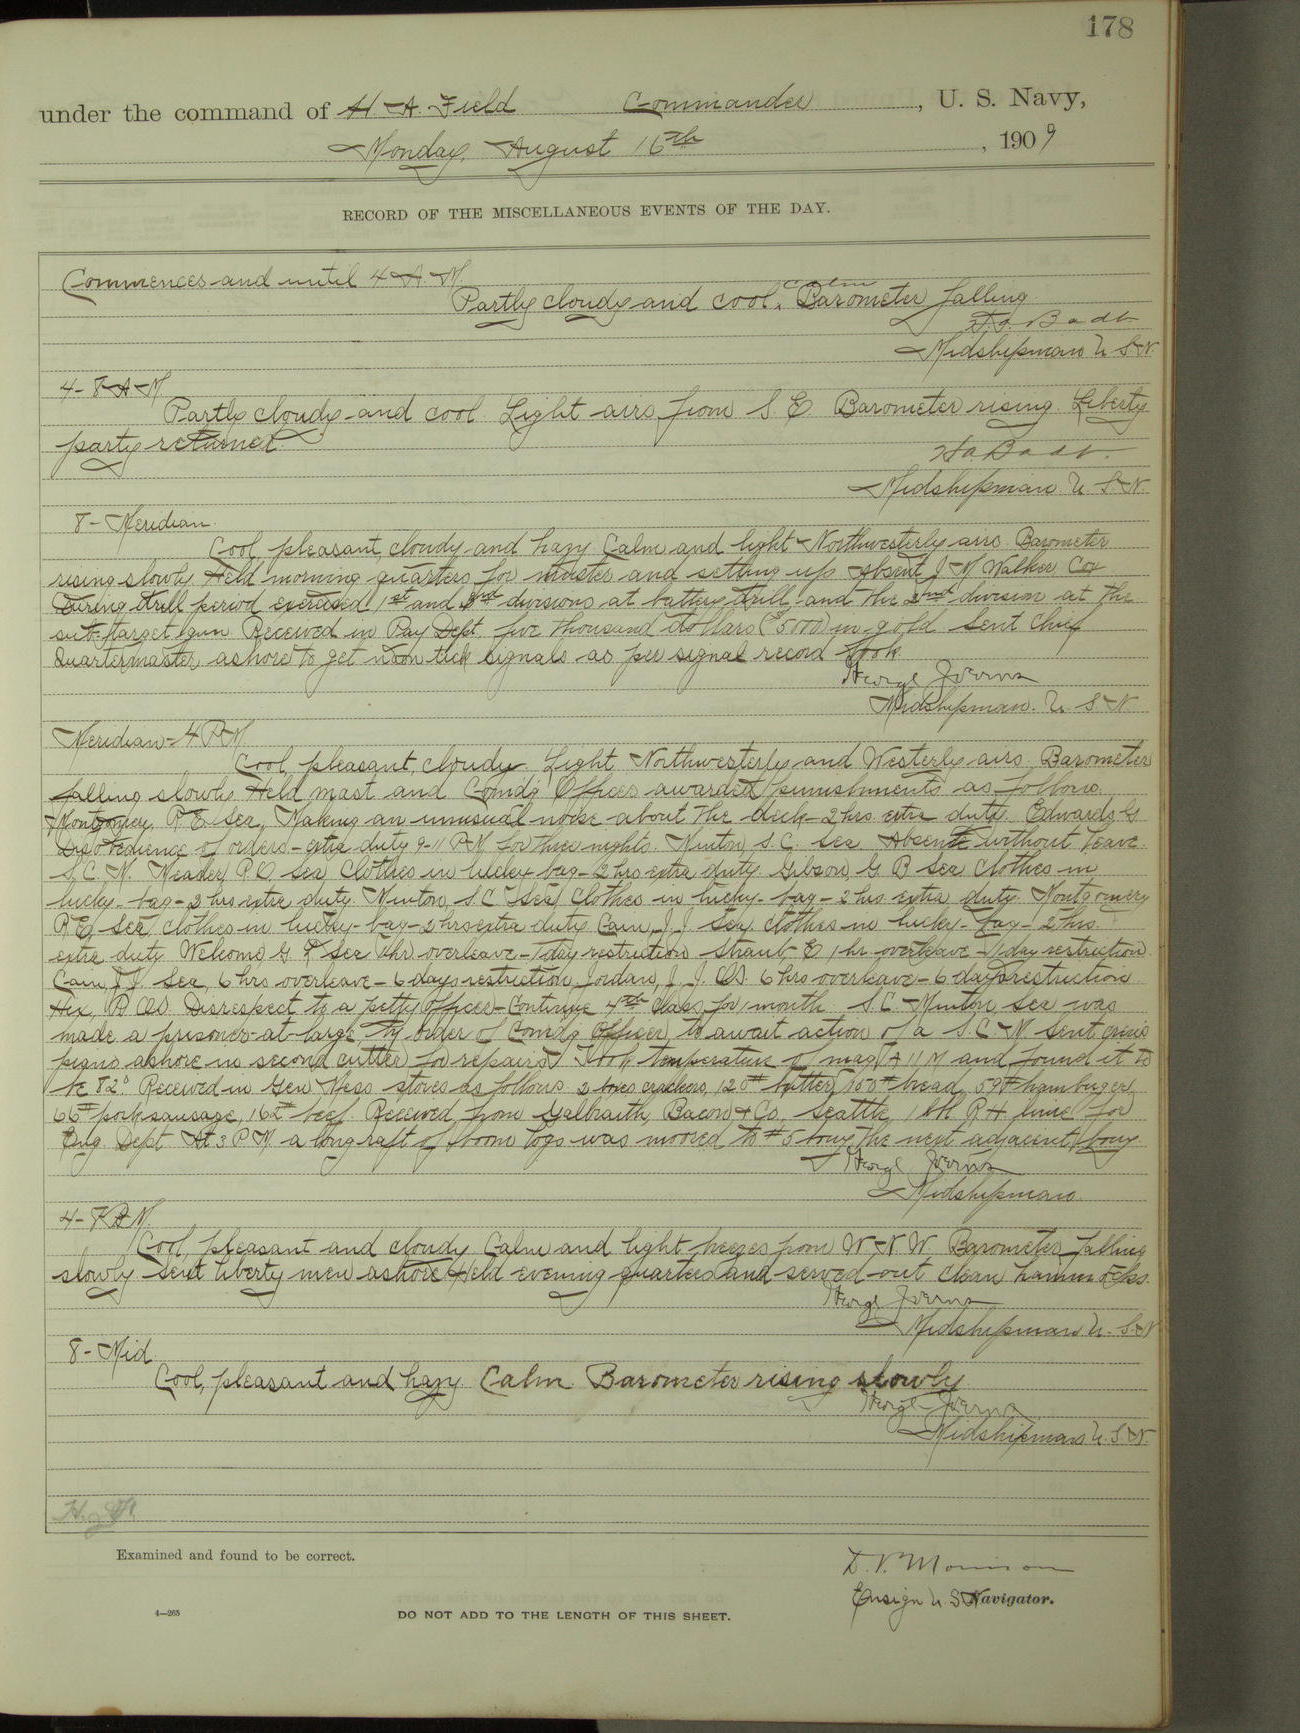 178
under the command of H A Field Commander , U. S. Navy,
Monday, August 16th , 1909
RECORD OF THE MISCELLANEOUS EVENTS OF THE DAY.
Commences and until 4 A M
Partly cloudy and cool. calm Barometer falling
Badt
Midshipman U S N.
4-8 A M
Partly cloudy and cool Light airs from S. E. Barometer rising. Liberty
party returned.
Badt.
Midshipman U. S. N.
8 - Meridian.
Cool, pleasant, cloudy and hazy Calm and light Northwesterly airs Barometer
rising slowly Held morning quarters for muster and setting up Absent J. N Walker Cox
During drill period exercised 1st and 3rd divisions at battery drill and the 2nd division at the
sub-target gun Received in Pay Dept. five thousand dollars ($5000) in gold Sent Chief
Quartermaster ashore to get noon tick signals as per signal record book.
George
Midshipman. U. S N
Meridian-4 P M
Cool, pleasant, cloudy Light Northwesterly and Westerly airs Barometer
falling slowly Held mast and Comdg Officer awarded punishments as follows
Montgomery, R E Sea, Making an unusual noise about the deck-2 hrs extra duty. Edwards G
Disobedience of orders-extra duty 9-11 P M for three nights. Minton, S. C. Sea Absent without leave.
S. C. M. Meader, P. O Sea Clothes in lucky bag-2 hrs extra duty Gibson, G B Sea Clothes in
lucky-bag-2 hrs extra duty. Minton, S. C. Sea, Clothes in lucky-bag-2 hrs extra duty Montgomery
R E, Sea, clothes in lucky-bag-2 hrs extra duty. Cain, J. J. Sea, clothes in lucky-bag-2 hrs.
extra duty. Welcome, G. P Sea 1 hr overleave-1 day restriction Straub, E 1 hr. overleave-1 day restriction
Cain, J. J. Sea, 6 hrs overleave-6 days restriction, Jordan, J. J. 6 hrs overleave-6 days restriction
Hix, Disrespect to a petty officer-Continue 4th Class for 1 month S. C. Minton Sea was
made a prisoner-at-large by order of Comdg Officer to await action of a S. C M Sent crew's
piano ashore in second cutter for repairs Took temperature of mag A 11 M and found it to
be 82° Received in Gen Mess stores as follows 2 boxes crackers, 120# butter, 150# bread, 59# hamburger,
66# pork sausage, 162# beef. Received from Galbraith, Bacon & Co, Seattle, 1 bbl R H lime for
Eng. Dept At 3 P. M. a long raft of boom logs was moored to #5 buoy the next adjacent buoy
George
Midshipman
4-8 P M.
Cool, pleasant and cloudy Calm and light breezes from W N W Barometer falling
slowly Sent liberty men ashore Held evening quarters and served out clean hammocks.
George
Midshipman U. S. N
8-Mid
Cool, pleasant and hazy. Calm Barometer rising slowly
George
Midshipman U. S. N.
Examined and found to be correct.
D. V. Morrison
Ensign U. S N Navigator.
4—265
DO NOT ADD TO THE LENGTH OF THIS SHEET.